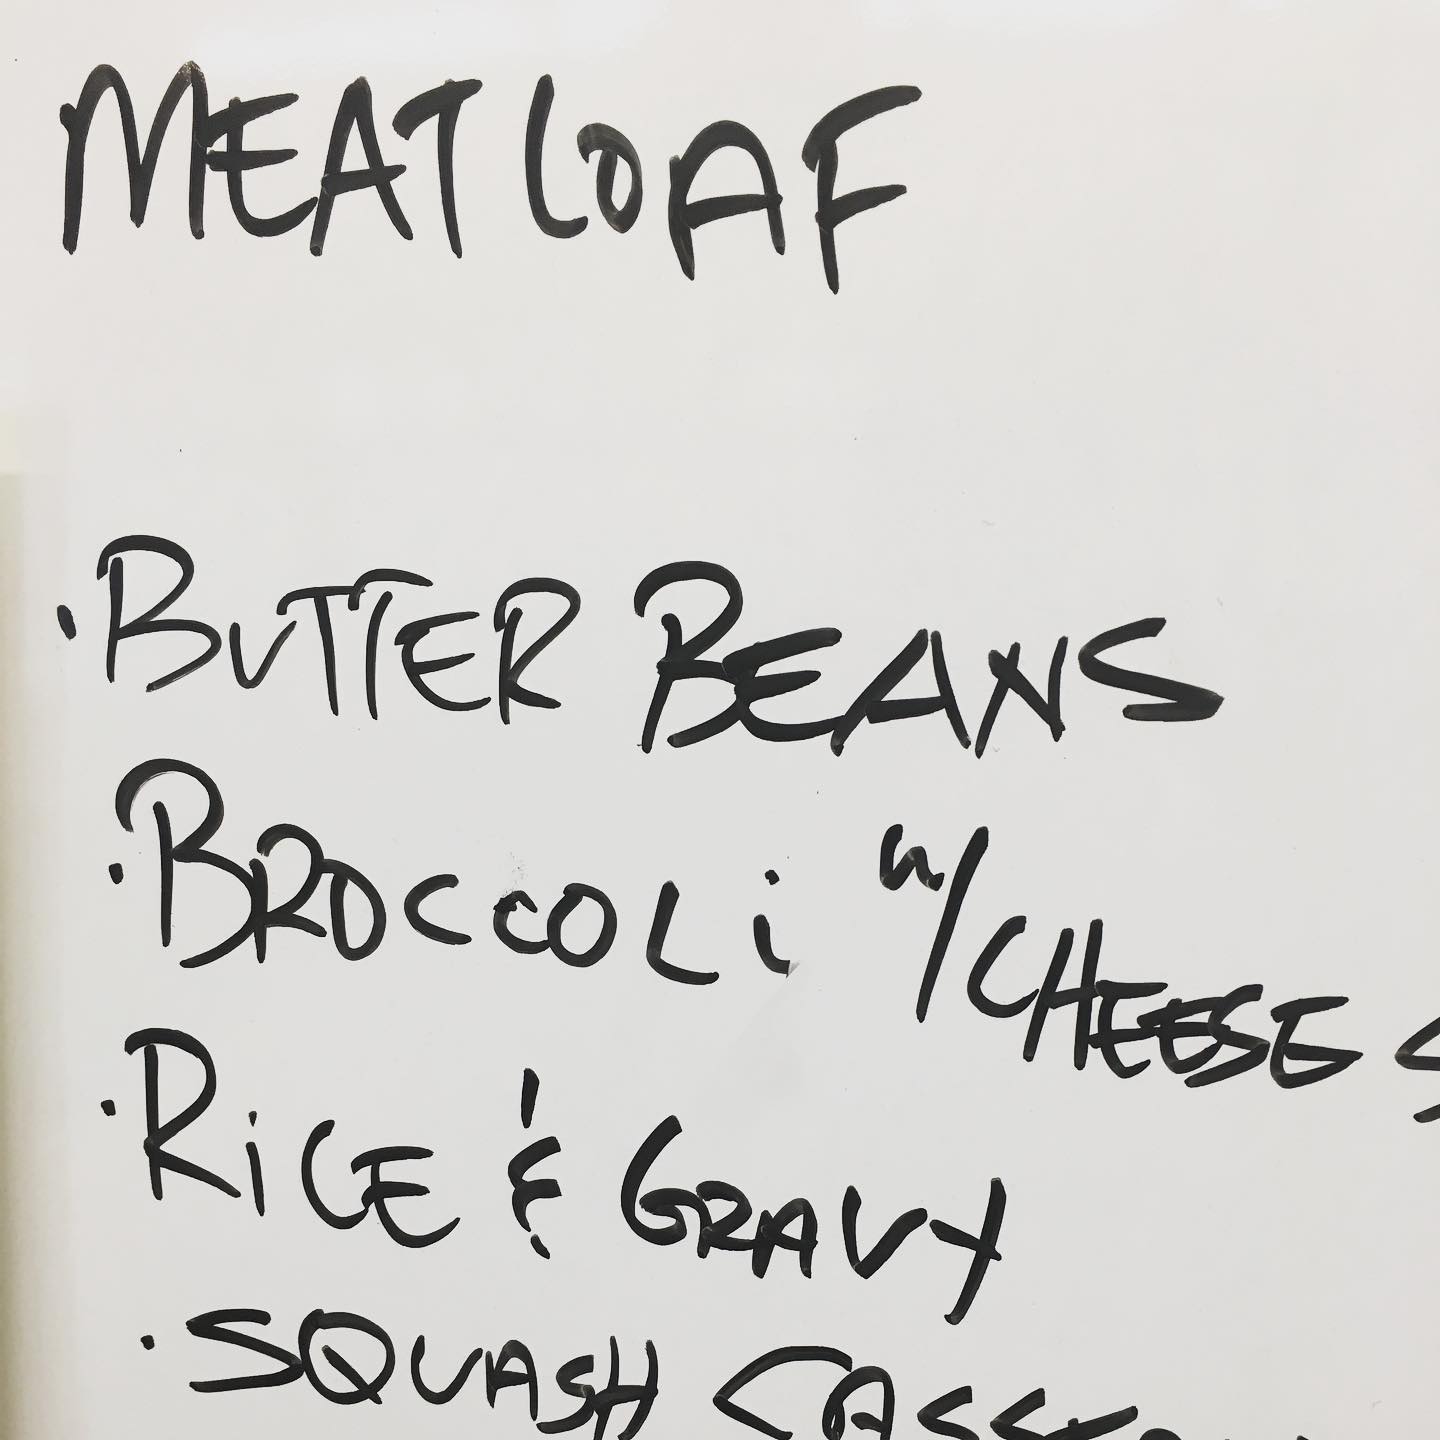 MEATLOAF
· BUTTER BEANS
· BROCCOLi w/ CHEESE S
· RiCE & GRAVY
· SQUASH